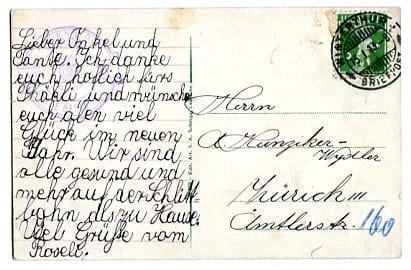 Lieber Onkel und
Tante. Ich danke
euch höflich fürs
Päkli und wünsche
euch allen viel
Glück im neuen
Jahr. Wir sind
alle gesund und
mehr auf der Schlitt
bahn als zu Hause.
Viel Grüße vom
Roseli.
Herrn
A. Hunziker-
Wydler
Zürich III
Ämtlerstr. 160
WINTERTHUR
BRIEFPOST